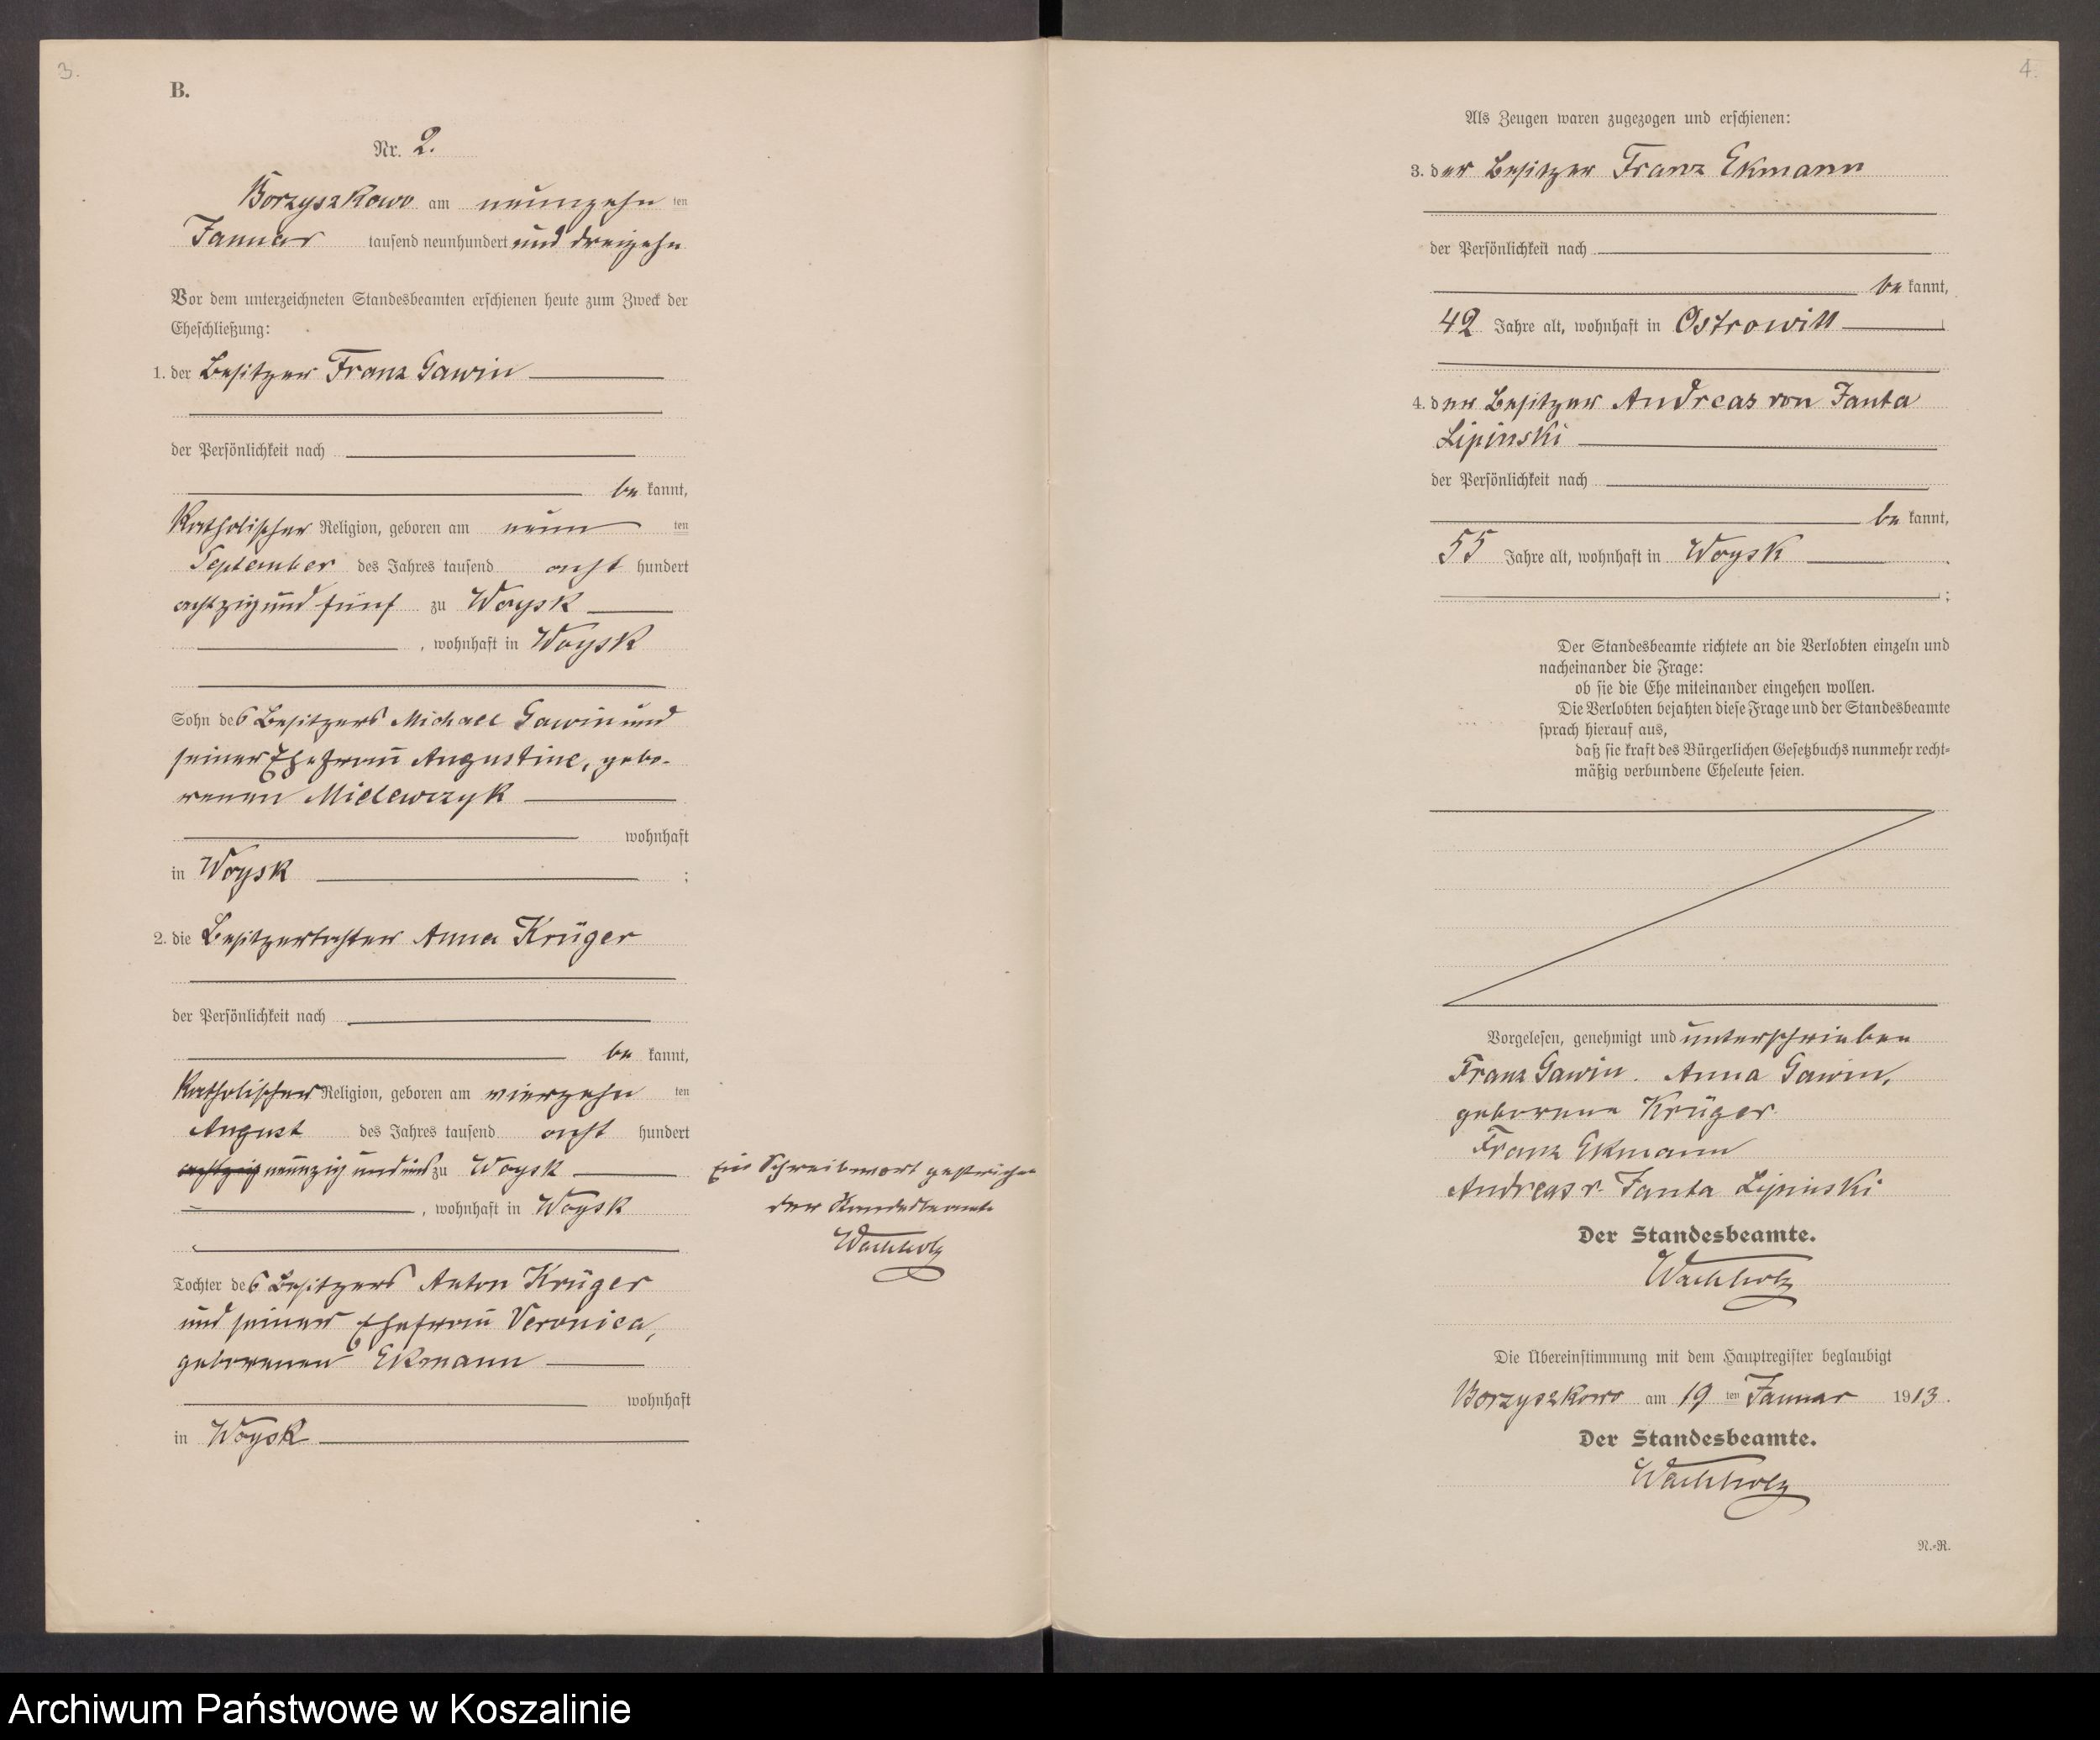 3.
B.
Nr. 2.
Borzyszkowo am neunzehn ten
Januar tausend neunhundert und dreizehn
Vor dem unterzeichneten Standesbeamten erschienen heute zum Zweck der
Eheschließung:
1. der Besitzer Franz Gawin
der Persönlichkeit nach
be kannt,
Katholischer Religion, geboren am neun ten
September des Jahres tausend acht hundert
achtzig und fünf zu Woysk
, wohnhaft in Woysk
Sohn des Besitzers Michael Gawin und
seiner Ehefrau Augustine, gebo-
renen Mielewczyk
wohnhaft
in Woysk ;
2. die Besitzertochter Anna Krüger
der Persönlichkeit nach
be kannt,
Katholischer Religion, geboren am vierzehn ten
August des Jahres tausend acht hundert
achtzig neunzig und eins zu Woysk
, wohnhaft in Woysk
Tochter des Besitzers Anton Krüger
und seiner Ehefrau Veronica,
geborenen Ekmann
wohnhaft
in Woysk
Ein Schreibwort gestrichen
der Standesbeamte
Wachholz
4.
Als Zeugen waren zugezogen und erschienen:
3. der Besitzer Franz Ekmann
der Persönlichkeit nach
be kannt,
42 Jahre alt, wohnhaft in Ostrowitt
4. der Besitzer Andreas von Janta
Lipinski
der Persönlichkeit nach
be kannt,
55 Jahre alt, wohnhaft in Woysk
;
Der Standesbeamte richtete an die Verlobten einzeln und
nacheinander die Frage:
ob sie die Ehe miteinander eingehen wollen.
Die Verlobten bejahten diese Frage und der Standesbeamte
sprach hierauf aus,
daß sie kraft des Bürgerlichen Gesetzbuchs nunmehr recht-
mäßig verbundene Eheleute seien.
Vorgelesen, genehmigt und unterschrieben
Franz Gawin. Anna Gawin,
geborene Krüger
Franz Ekmann
Andreas v. Janta Lipinski
Der Standesbeamte.
Wachholz
Die Übereinstimmung mit dem Hauptregister beglaubigt
Borzyszkowo am 19 ten Januar 1913.
Der Standesbeamte.
Wachholz
N.-R.
Archiwum Państwowe w Koszalinie